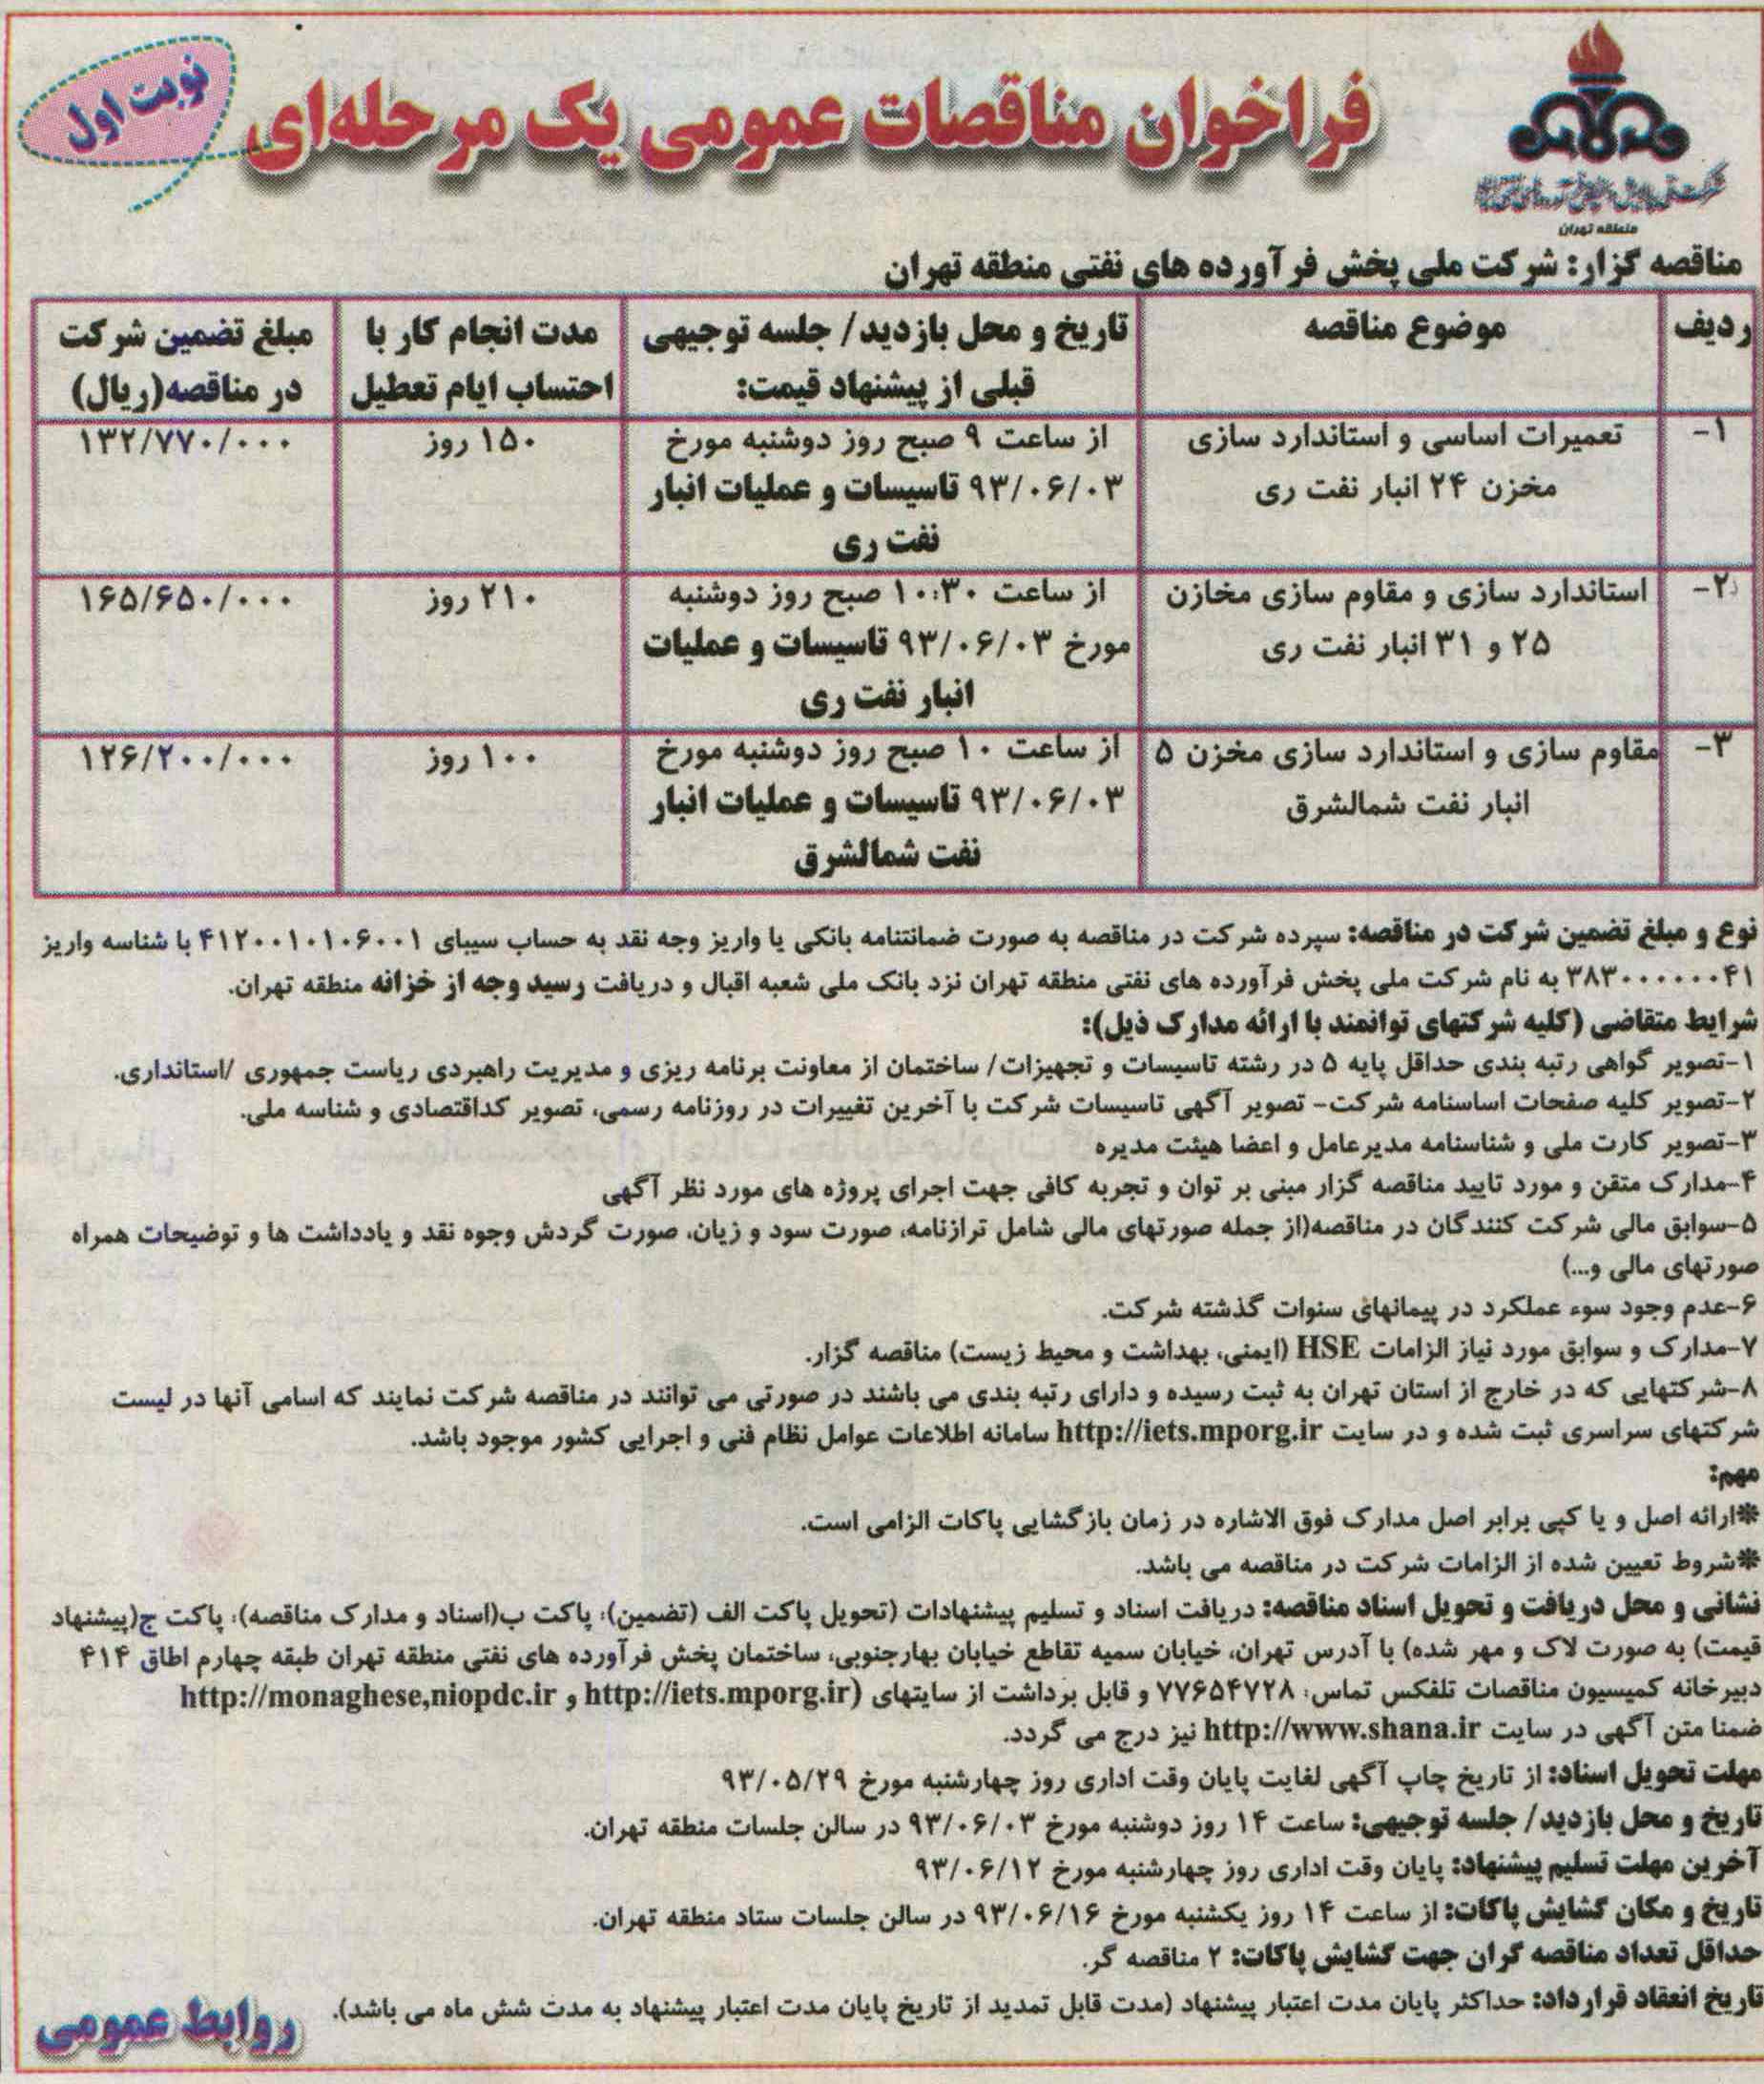 نوبت اول
فراخوان مناقصات عمومی یک مرحله‌ای
منطقه تهران
مناقصه گزار: شرکت ملی پخش فرآورده های نفتی منطقه تهران
ردیف
موضوع مناقصه
تاریخ و محل بازدید/ جلسه توجیهی
قبلی از پیشنهاد قیمت:
مدت انجام کار با
احتساب ایام تعطیل
مبلغ تضمین شرکت
در مناقصه(ریال)
۱-
تعمیرات اساسی و استاندارد سازی
مخزن ۲۴ انبار نفت ری
از ساعت ۹ صبح روز دوشنبه مورخ
۹۳/۰۶/۰۳ تاسیسات و عملیات انبار
نفت ری
۱۵۰ روز
۱۳۲/۷۷۰/۰۰۰
۲-
استاندارد سازی و مقاوم سازی مخازن
۲۵ و ۳۱ انبار نفت ری
از ساعت ۱۰:۳۰ صبح روز دوشنبه
مورخ ۹۳/۰۶/۰۳ تاسیسات و عملیات
انبار نفت ری
۲۱۰ روز
۱۶۵/۶۵۰/۰۰۰
۳-
مقاوم سازی و استاندارد سازی مخزن ۵
انبار نفت شمالشرق
از ساعت ۱۰ صبح روز دوشنبه مورخ
۹۳/۰۶/۰۳ تاسیسات و عملیات انبار
نفت شمالشرق
۱۰۰ روز
۱۲۶/۲۰۰/۰۰۰
نوع و مبلغ تضمین شرکت در مناقصه: سپرده شرکت در مناقصه به صورت ضمانتنامه بانکی یا واریز وجه نقد به حساب سیبای ۴۱۲۰۰۱۰۱۰۶۰۰۱ با شناسه واریز
۳۸۳۰۰۰۰۰۰۴۱ به نام شرکت ملی پخش فرآورده های نفتی منطقه تهران نزد بانک ملی شعبه اقبال و دریافت رسید وجه از خزانه منطقه تهران.
شرایط متقاضی (کلیه شرکتهای توانمند با ارائه مدارک ذیل):
۱-تصویر گواهی رتبه بندی حداقل پایه ۵ در رشته تاسیسات و تجهیزات/ ساختمان از معاونت برنامه ریزی و مدیریت راهبردی ریاست جمهوری /استانداری.
۲-تصویر کلیه صفحات اساسنامه شرکت- تصویر آگهی تاسیسات شرکت با آخرین تغییرات در روزنامه رسمی، تصویر کداقتصادی و شناسه ملی.
۳-تصویر کارت ملی و شناسنامه مدیرعامل و اعضا هیئت مدیره
۴-مدارک متقن و مورد تایید مناقصه گزار مبنی بر توان و تجربه کافی جهت اجرای پروژه های مورد نظر آگهی
۵-سوابق مالی شرکت کنندگان در مناقصه(از جمله صورتهای مالی شامل ترازنامه، صورت سود و زیان، صورت گردش وجوه نقد و یادداشت ها و توضیحات همراه
صورتهای مالی و...)
۶-عدم وجود سوء عملکرد در پیمانهای سنوات گذشته شرکت.
۷-مدارک و سوابق مورد نیاز الزامات HSE (ایمنی، بهداشت و محیط زیست) مناقصه گزار.
۸-شرکتهایی که در خارج از استان تهران به ثبت رسیده و دارای رتبه بندی می باشند در صورتی می توانند در مناقصه شرکت نمایند که اسامی آنها در لیست
شرکتهای سراسری ثبت شده و در سایت http://iets.mporg.ir سامانه اطلاعات عوامل نظام فنی و اجرایی کشور موجود باشد.
مهم:
*ارائه اصل و یا کپی برابر اصل مدارک فوق الاشاره در زمان بازگشایی پاکات الزامی است.
*شروط تعیین شده از الزامات شرکت در مناقصه می باشد.
نشانی و محل دریافت و تحویل اسناد مناقصه: دریافت اسناد و تسلیم پیشنهادات (تحویل پاکت الف (تضمین)، پاکت ب(اسناد و مدارک مناقصه)، پاکت ج(پیشنهاد
قیمت) به صورت لاک و مهر شده) با آدرس تهران، خیابان سمیه تقاطع خیابان بهارجنوبی، ساختمان پخش فرآورده های نفتی منطقه تهران طبقه چهارم اطاق ۴۱۴
دبیرخانه کمیسیون مناقصات تلفکس تماس: ۷۷۶۵۴۷۲۸ و قابل برداشت از سایتهای (http://iets.mporg.ir و http://monaghese,niopdc.ir
ضمنا متن آگهی در سایت http://www.shana.ir نیز درج می گردد.
مهلت تحویل اسناد: از تاریخ چاپ آگهی لغایت پایان وقت اداری روز چهارشنبه مورخ ۹۳/۰۵/۲۹
تاریخ و محل بازدید/ جلسه توجیهی: ساعت ۱۴ روز دوشنبه مورخ ۹۳/۰۶/۰۳ در سالن جلسات منطقه تهران.
آخرین مهلت تسلیم پیشنهاد: پایان وقت اداری روز چهارشنبه مورخ ۹۳/۰۶/۱۲
تاریخ و مکان گشایش پاکات: از ساعت ۱۴ روز یکشنبه مورخ ۹۳/۰۶/۱۶ در سالن جلسات ستاد منطقه تهران.
حداقل تعداد مناقصه گران جهت گشایش پاکات: ۲ مناقصه گر.
تاریخ انعقاد قرارداد: حداکثر پایان مدت اعتبار پیشنهاد (مدت قابل تمدید از تاریخ پایان مدت اعتبار پیشنهاد به مدت شش ماه می باشد).
روابط عمومی